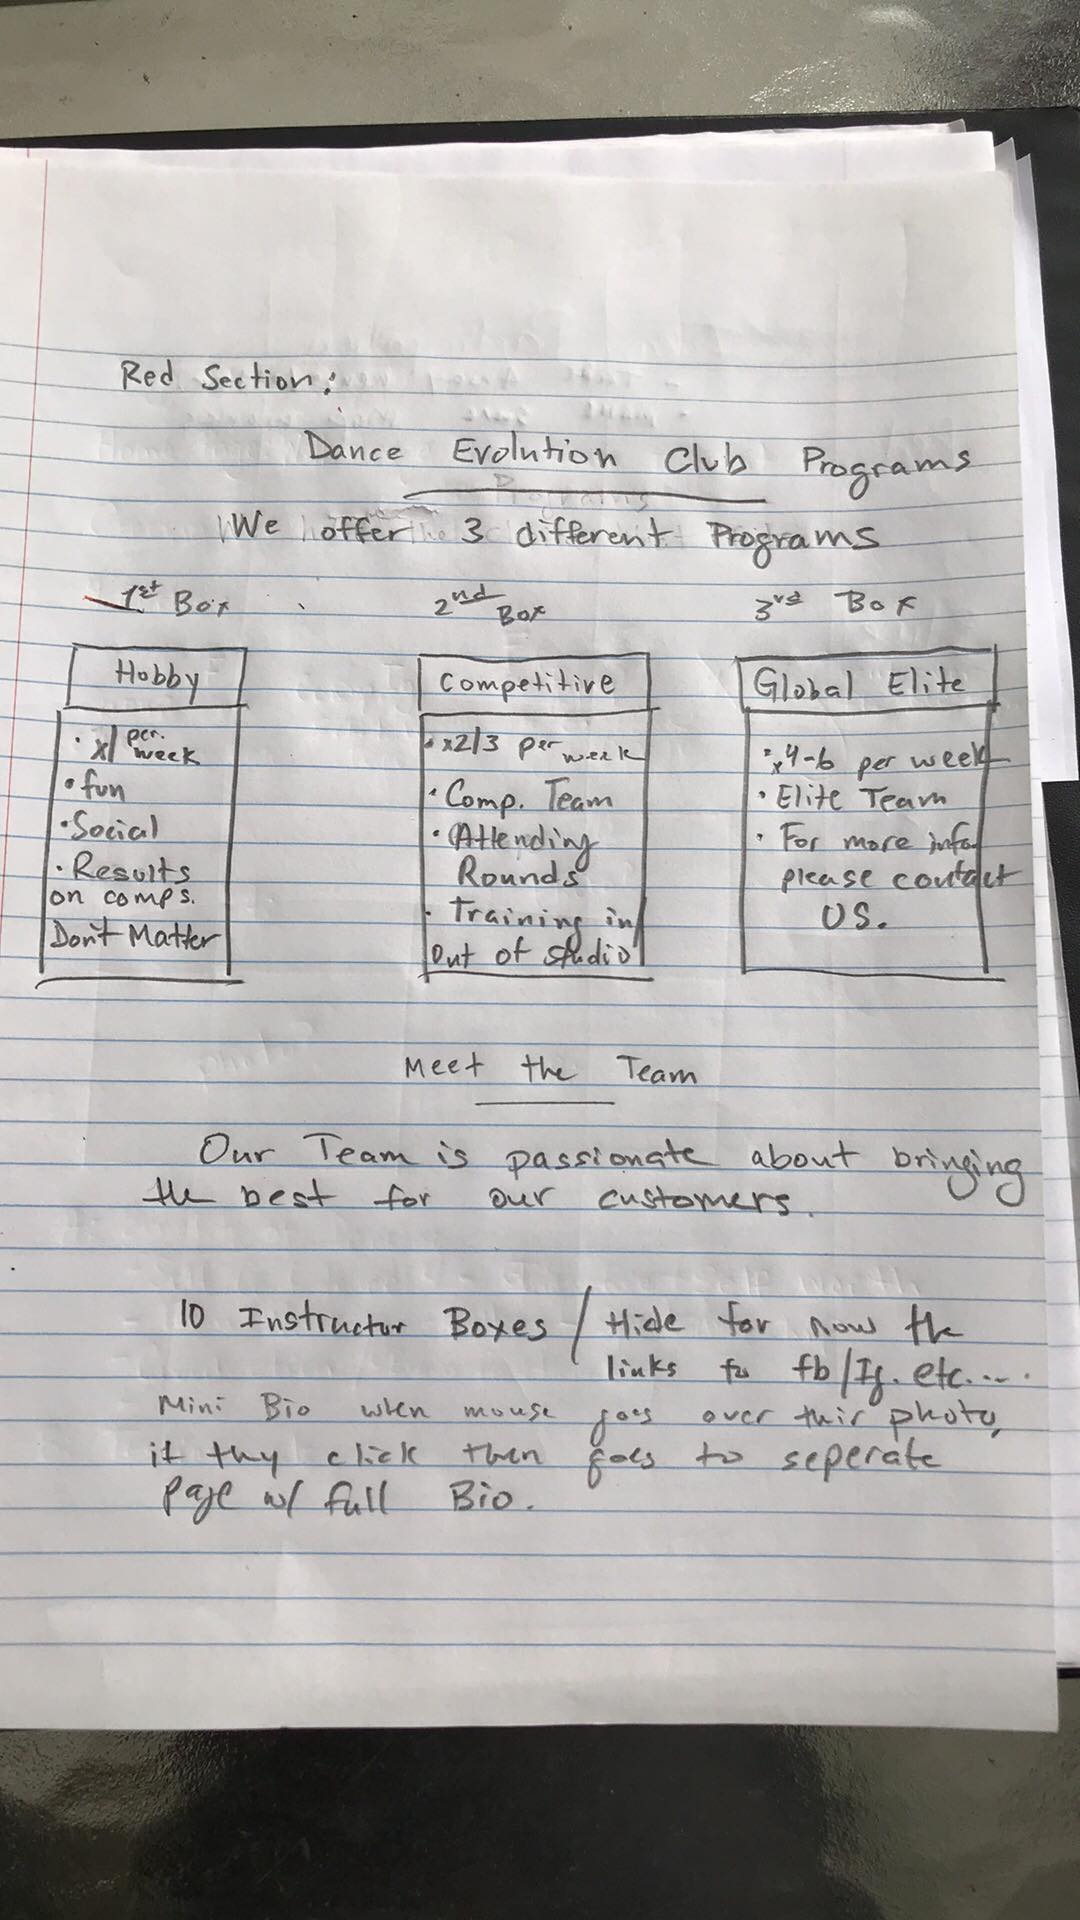 Red Section:
Dance Evolution Club Programs
We offer 3 different Programs
1st Box
2nd Box
3rd Box
Hobby
• x1 per week
• fun
• Social
• Results
on comps.
Don't Matter
Competitive
• x2/3 per week
• Comp. Team
• Attending
Rounds
• Training in/
Out of studio
Global Elite
• x4-6 per week
• Elite Team
• For more info
please contact
US.
Meet the Team
Our Team is passionate about bringing
the best for our customers.
10 Instructor Boxes / Hide for now the
links to fb/Ig. etc....
Mini Bio when mouse goes over their photo,
if they click then goes to seperate
page w/ full Bio.